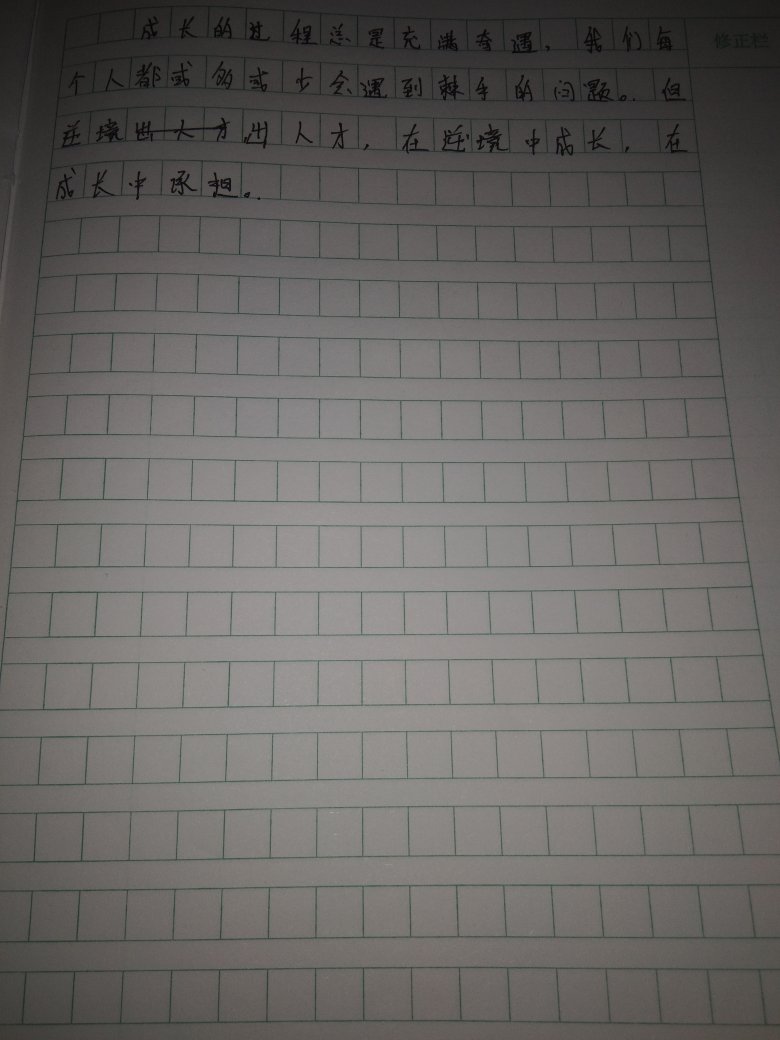 成长的过程总是充满奇遇，我们每
修正栏
个人都或多或少会遇到棘手的问题。但
逆境出大才出人才，在逆境中成长，在
成长中承担。